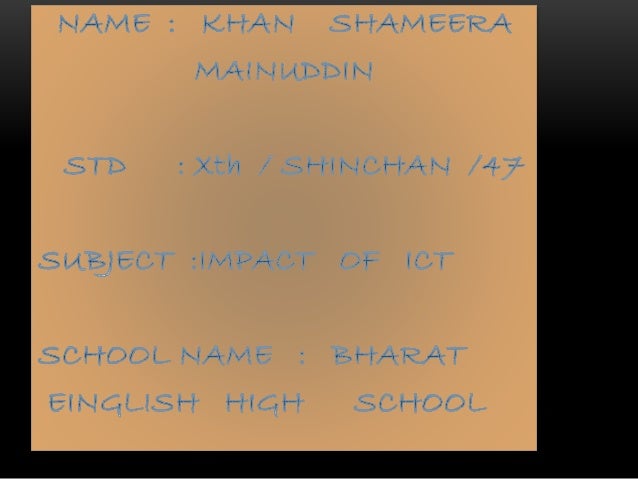 NAME : KHAN SHAMEERA
MAINUDDIN
STD : Xth / SHINCHAN /47
SUBJECT :IMPACT OF ICT
SCHOOL NAME : BHARAT
EINGLISH HIGH SCHOOL